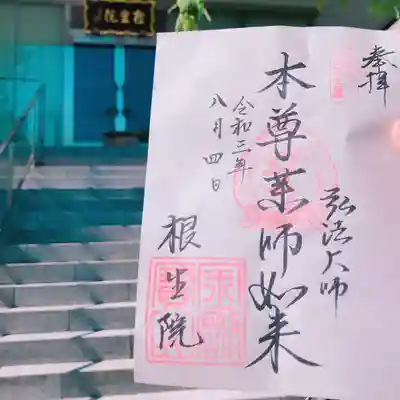 奉拝
弘法大師
本尊薬師如来
令和三年
八月四日
根生院